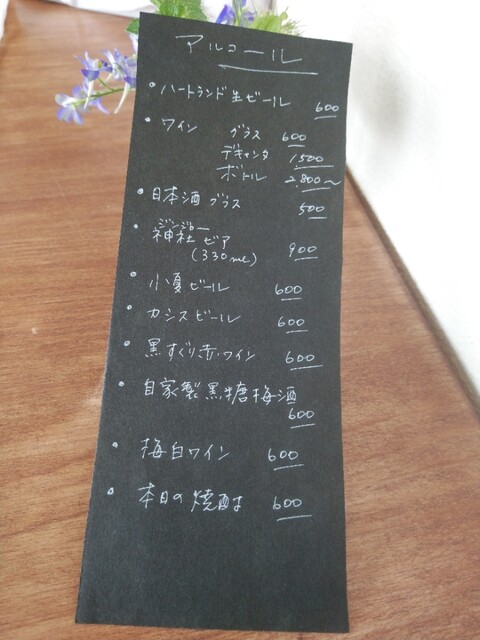 アルコール
・ハートランド生ビール 600
・ワイン グラス 600
デキャンタ 1500
ボトル 2,800〜
・日本酒 グラス 500
ジンジャー
・神社 ビア 900
(330ml)
・小夏ビール 600
・カシスビール 600
・黒すぐり赤ワイン 600
・自家製黒糖梅酒
600
・梅白ワイン 600
・本日の焼酎 600